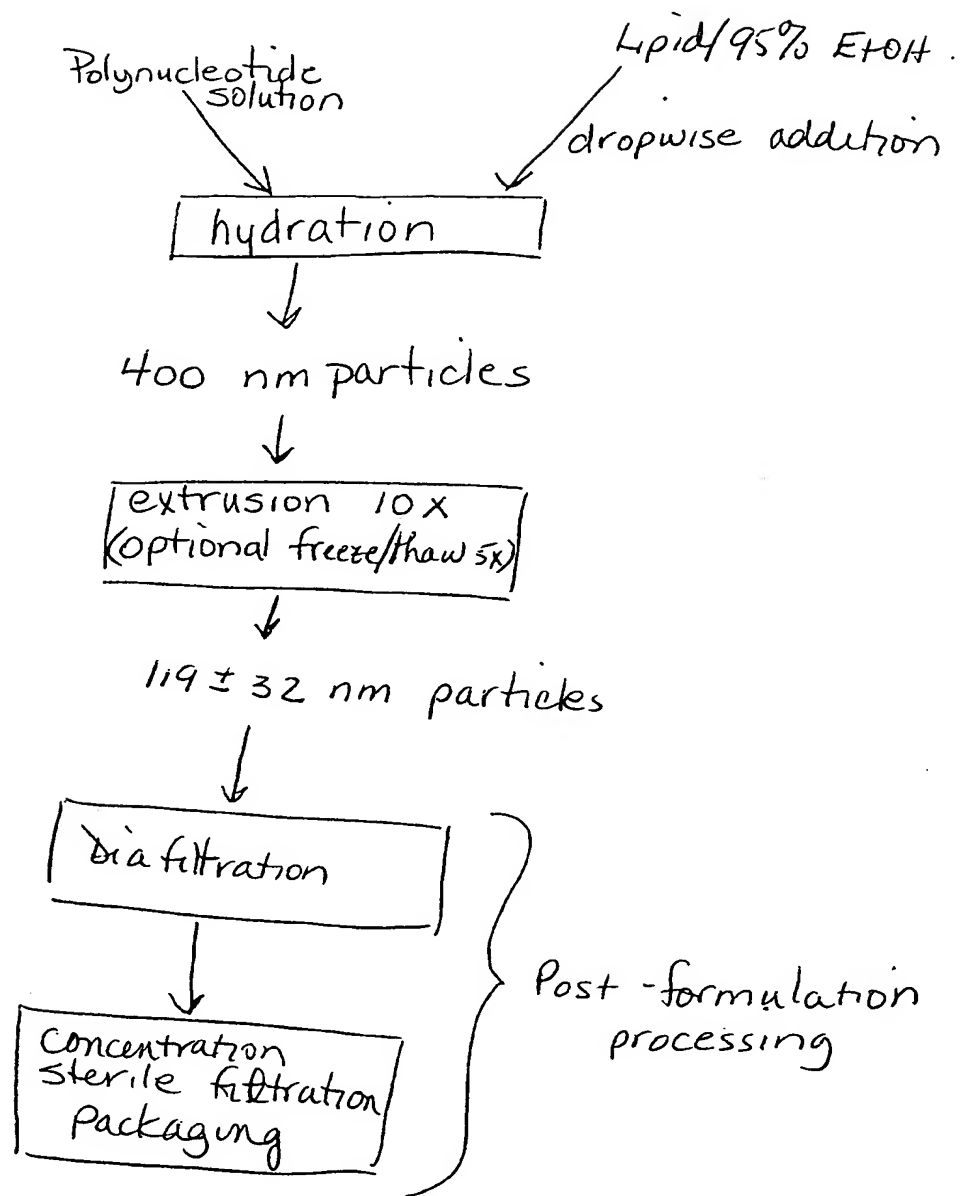 Polynucleotide
solution
Lipid/95% EtOH.
dropwise addition
hydration
400 nm particles
extrusion 10x
(optional freeze/thaw 5x)
119 ± 32 nm particles
Diafiltration
concentration
sterile filtration
packaging
Post-formulation
processing